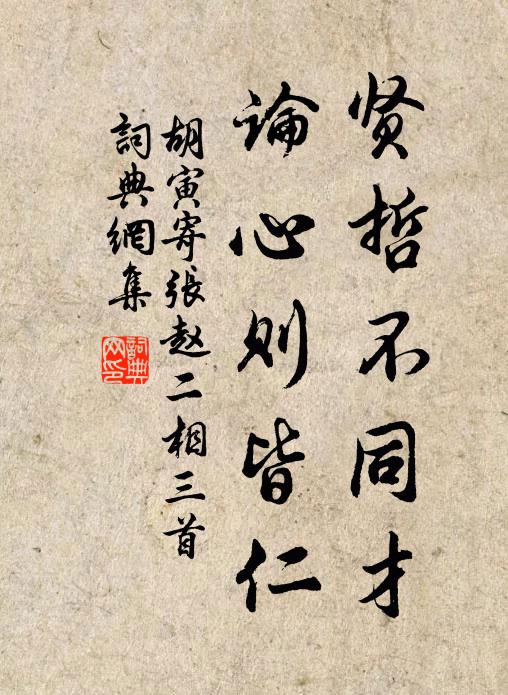 贤哲不同才
論心则皆仁
胡寅寄張赵二相三首
詞典網集
詞典网印